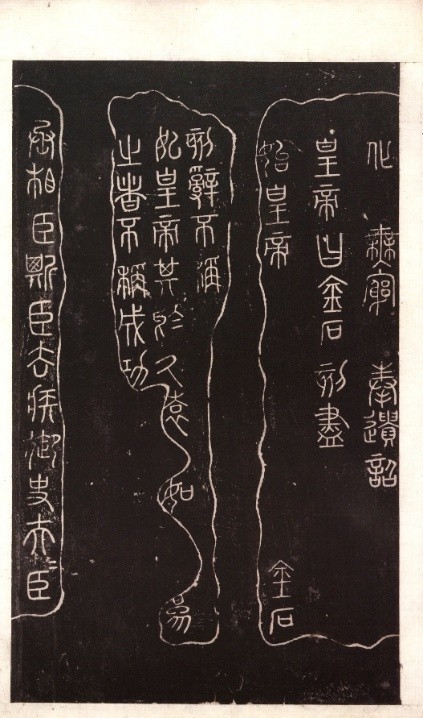 化 無窮 奉遺詔
皇帝曰金石刻盡
始皇帝 金石
刻辭不稱
始皇帝其於久遠 如 為
之者不稱成功
丞相臣斯臣去疾御史夫臣